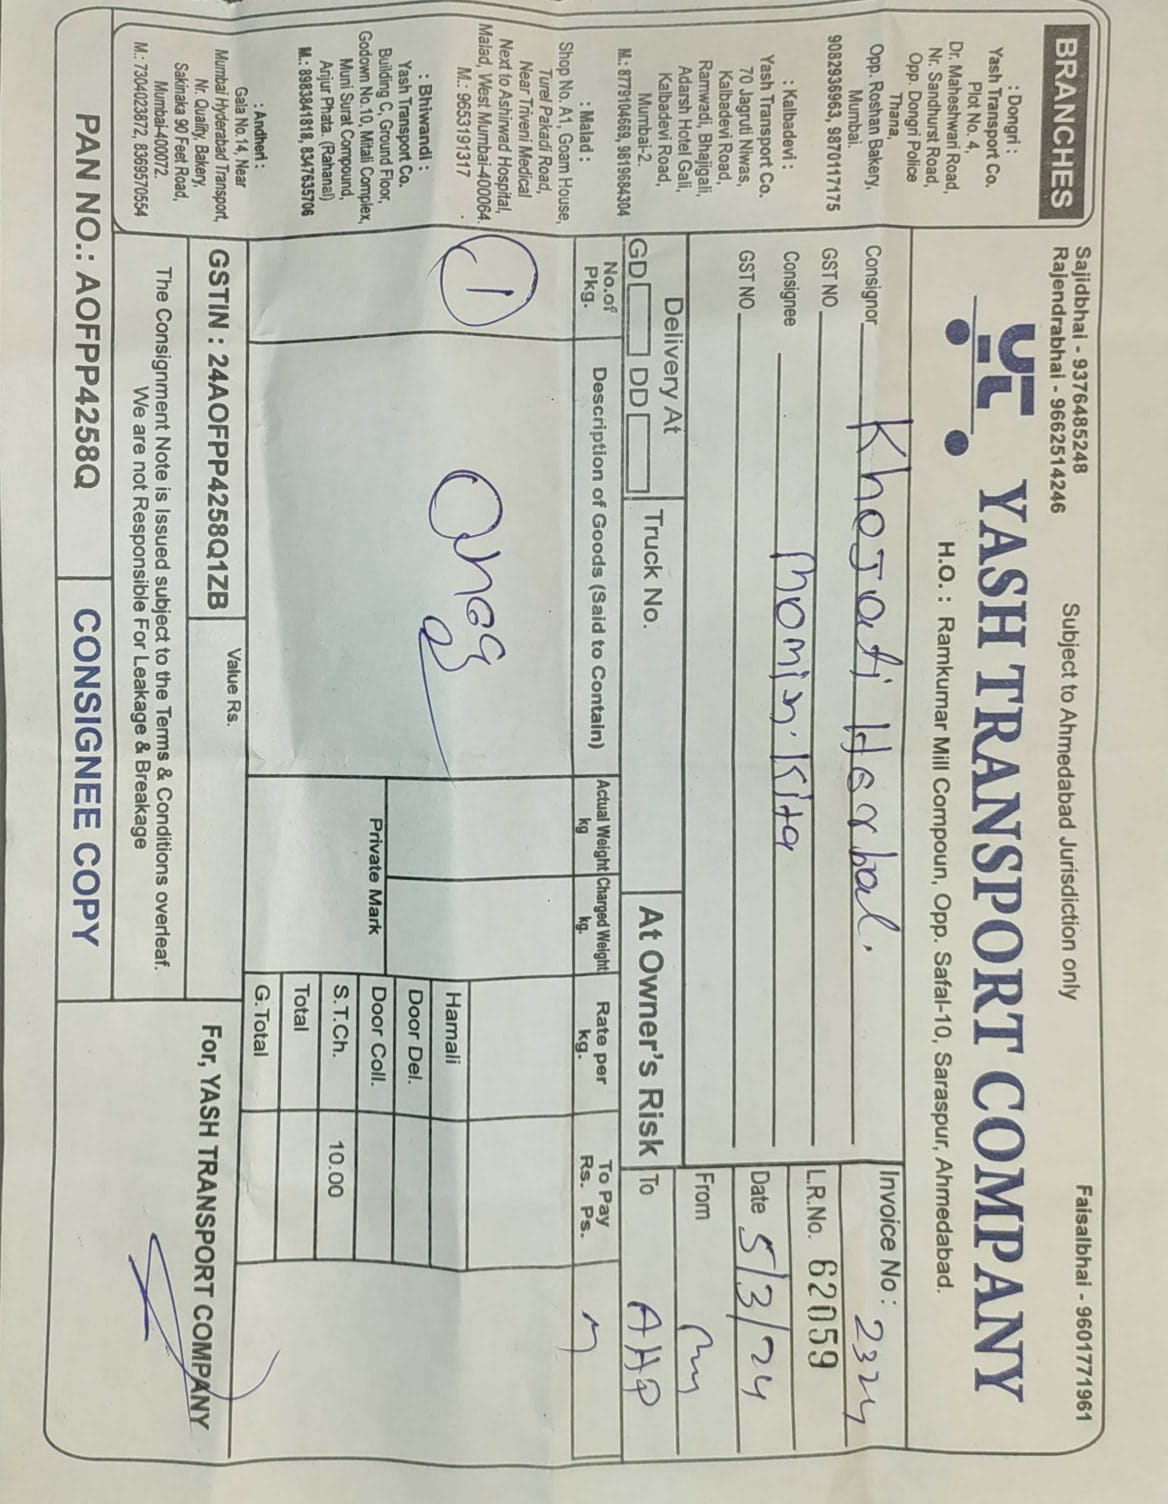 BRANCHES
: Dongri :
Yash Transport Co.
Plot No. 4,
Dr. Maheshwari Road,
Nr. Sandhurst Road,
Opp. Dongri Police
Thana,
Opp. Roshan Bakery,
Mumbai.
9082936963, 9870117175
: Kalbadevi :
Yash Transport Co.
70 Jagruti Niwas,
Kalbadevi Road,
Ramwadi, Bhajigali,
Adarsh Hotel Gali,
Kalbadevi Road,
Mumbai-2.
M.: 8779104669, 9819684304
: Malad :
Shop No. A1, Goam House,
Turel Pakadi Road,
Near Triveni Medical
Next to Ashirwad Hospital,
Malad, West Mumbai-400064.
M.: 9653191317
: Bhiwandi :
Yash Transport Co.
Building C, Ground Floor,
Godown No.10, Mitali Complex,
Muni Surat Compound,
Anjur Phata. (Rahanal)
M.: 8983841818, 8347635706
: Andheri :
Gala No.14, Near
Mumbai Hyderabad Transport,
Nr. Quality Bakery,
Sakinaka 90 Feet Road,
Mumbai-400072.
M.: 7304023872, 8369570554
Sajidbhai - 9376485248
Rajendrabhai - 9662514246
Subject to Ahmedabad Jurisdiction only
Faisalbhai - 9601771961
YASH TRANSPORT COMPANY
H.O. : Ramkumar Mill Compoun, Opp. Safal-10, Saraspur, Ahmedabad.
Consignor Khojati Harbal.
GST NO
Consignee Momin. Kita
GST NO
Invoice No : 2324
L.R.No. 62059
Date 5/3/24
From
To
Delivery At
GD DD
Truck No.
At Owner's Risk
No.of Pkg.
Description of Goods (Said to Contain)
Actual Weight kg
Charged Weight kg.
Rate per kg.
To Pay Rs. Ps.
1
Private Mark
Hamali
Door Del.
Door Coll.
S.T.Ch. 10.00
Total
G.Total
GSTIN : 24AOFPP4258Q1ZB
Value Rs.
The Consignment Note is Issued subject to the Terms & Conditions overleaf.
We are not Responsible For Leakage & Breakage
For, YASH TRANSPORT COMPANY
PAN NO.: AOFPP4258Q
CONSIGNEE COPY